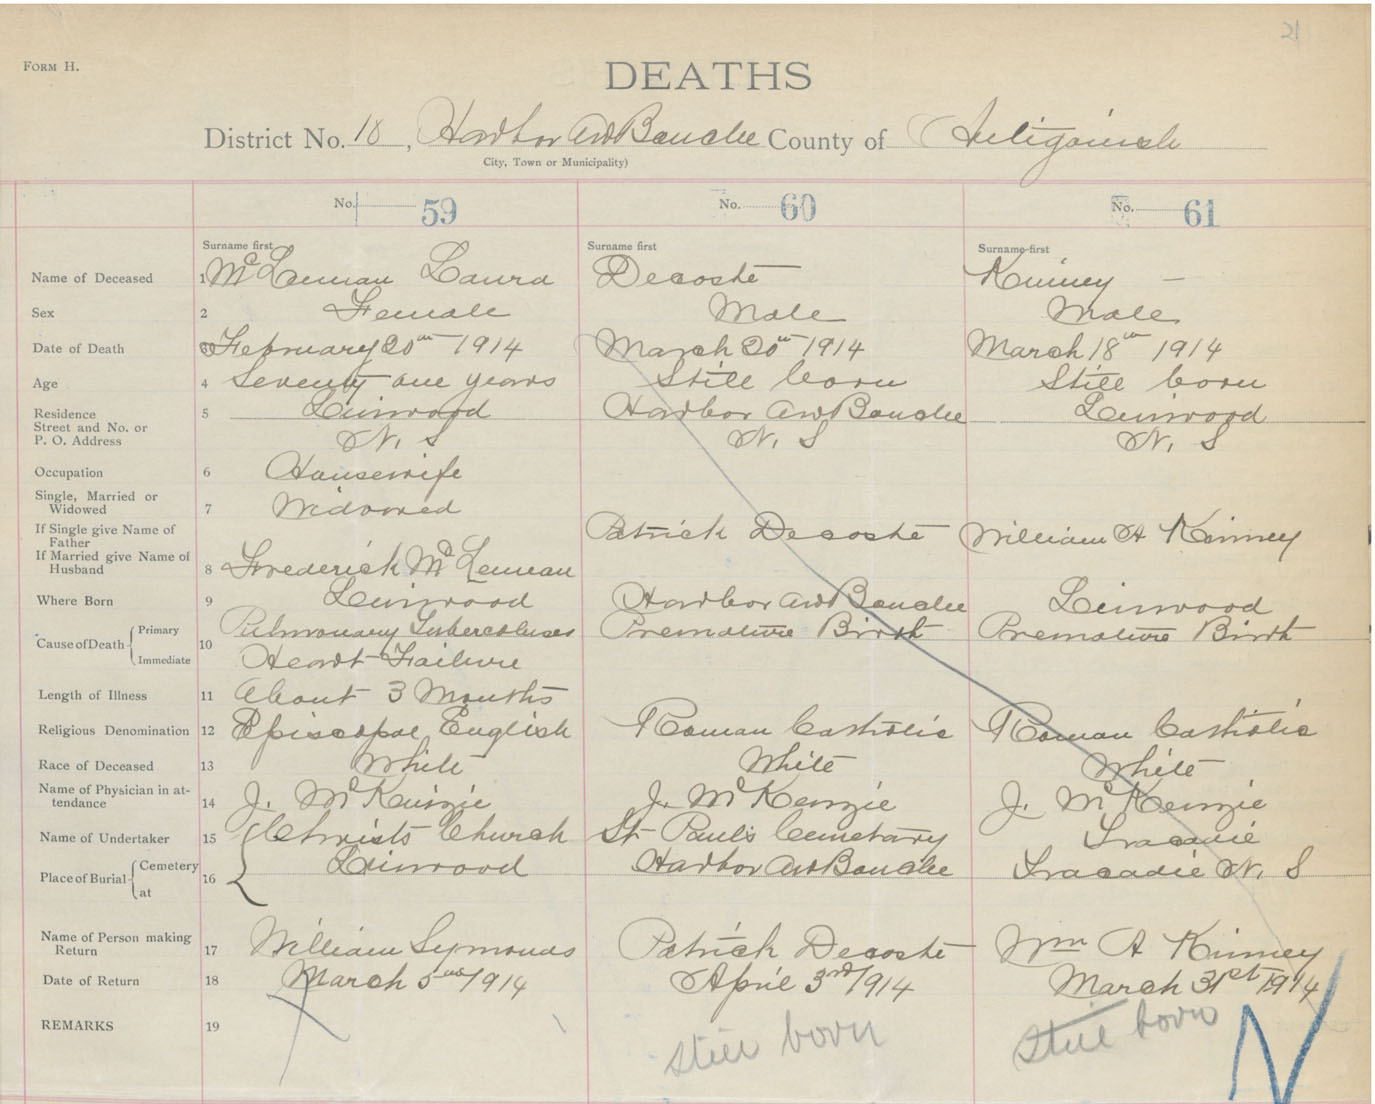 21
FORM H.
DEATHS
District No. 18, Harbor Au Bouche County of Antigonish
City, Town or Municipality)
No. 59 No. 60 No. 61
Surname first Surname first Surname first
Name of Deceased 1 McLennan Laura Decoste Kinney —
Sex 2 Female Male Male
Date of Death 3 February 20th 1914 March 20th 1914 March 18th 1914
Age 4 Seventy one years Still born Still born
Residence 5 Linwood Harbor Au Bouche Linwood
Street and No. or
P. O. Address N. S N. S N. S
Occupation 6 Housewife
Single, Married or
Widowed 7 Widowed
If Single give Name of
Father Patrick Decoste William A Kinney
If Married give Name of
Husband 8 Frederick McLennan
Where Born 9 Linwood Harbor Au Bouche Linwood
Cause of Death Primary 10 Pulmonary Tuberculuses Premature Birth Premature Birth
Immediate Heart Failure
Length of Illness 11 About 3 Months
Religious Denomination 12 Episcopal English Roman Catholic Roman Catholic
Race of Deceased 13 White White White
Name of Physician in at-
tendance 14 J. McKenzie J. McKenzie J. McKenzie
Name of Undertaker 15 Christs Church St Paul's Cemetary Tracadie
Place of Burial Cemetery at 16 Linwood Harbor Au Bouche Tracadie N. S
Name of Person making
Return 17 William Symonds Patrick Decoste Wm A Kinney
Date of Return 18 March 5th 1914 April 3rd 1914 March 31st 1914
REMARKS 19 still born still born